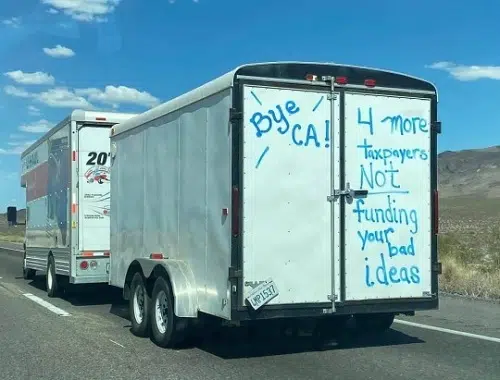 20'
Bye
CA!
4 more
taxpayers
Not
funding
your bad
ideas